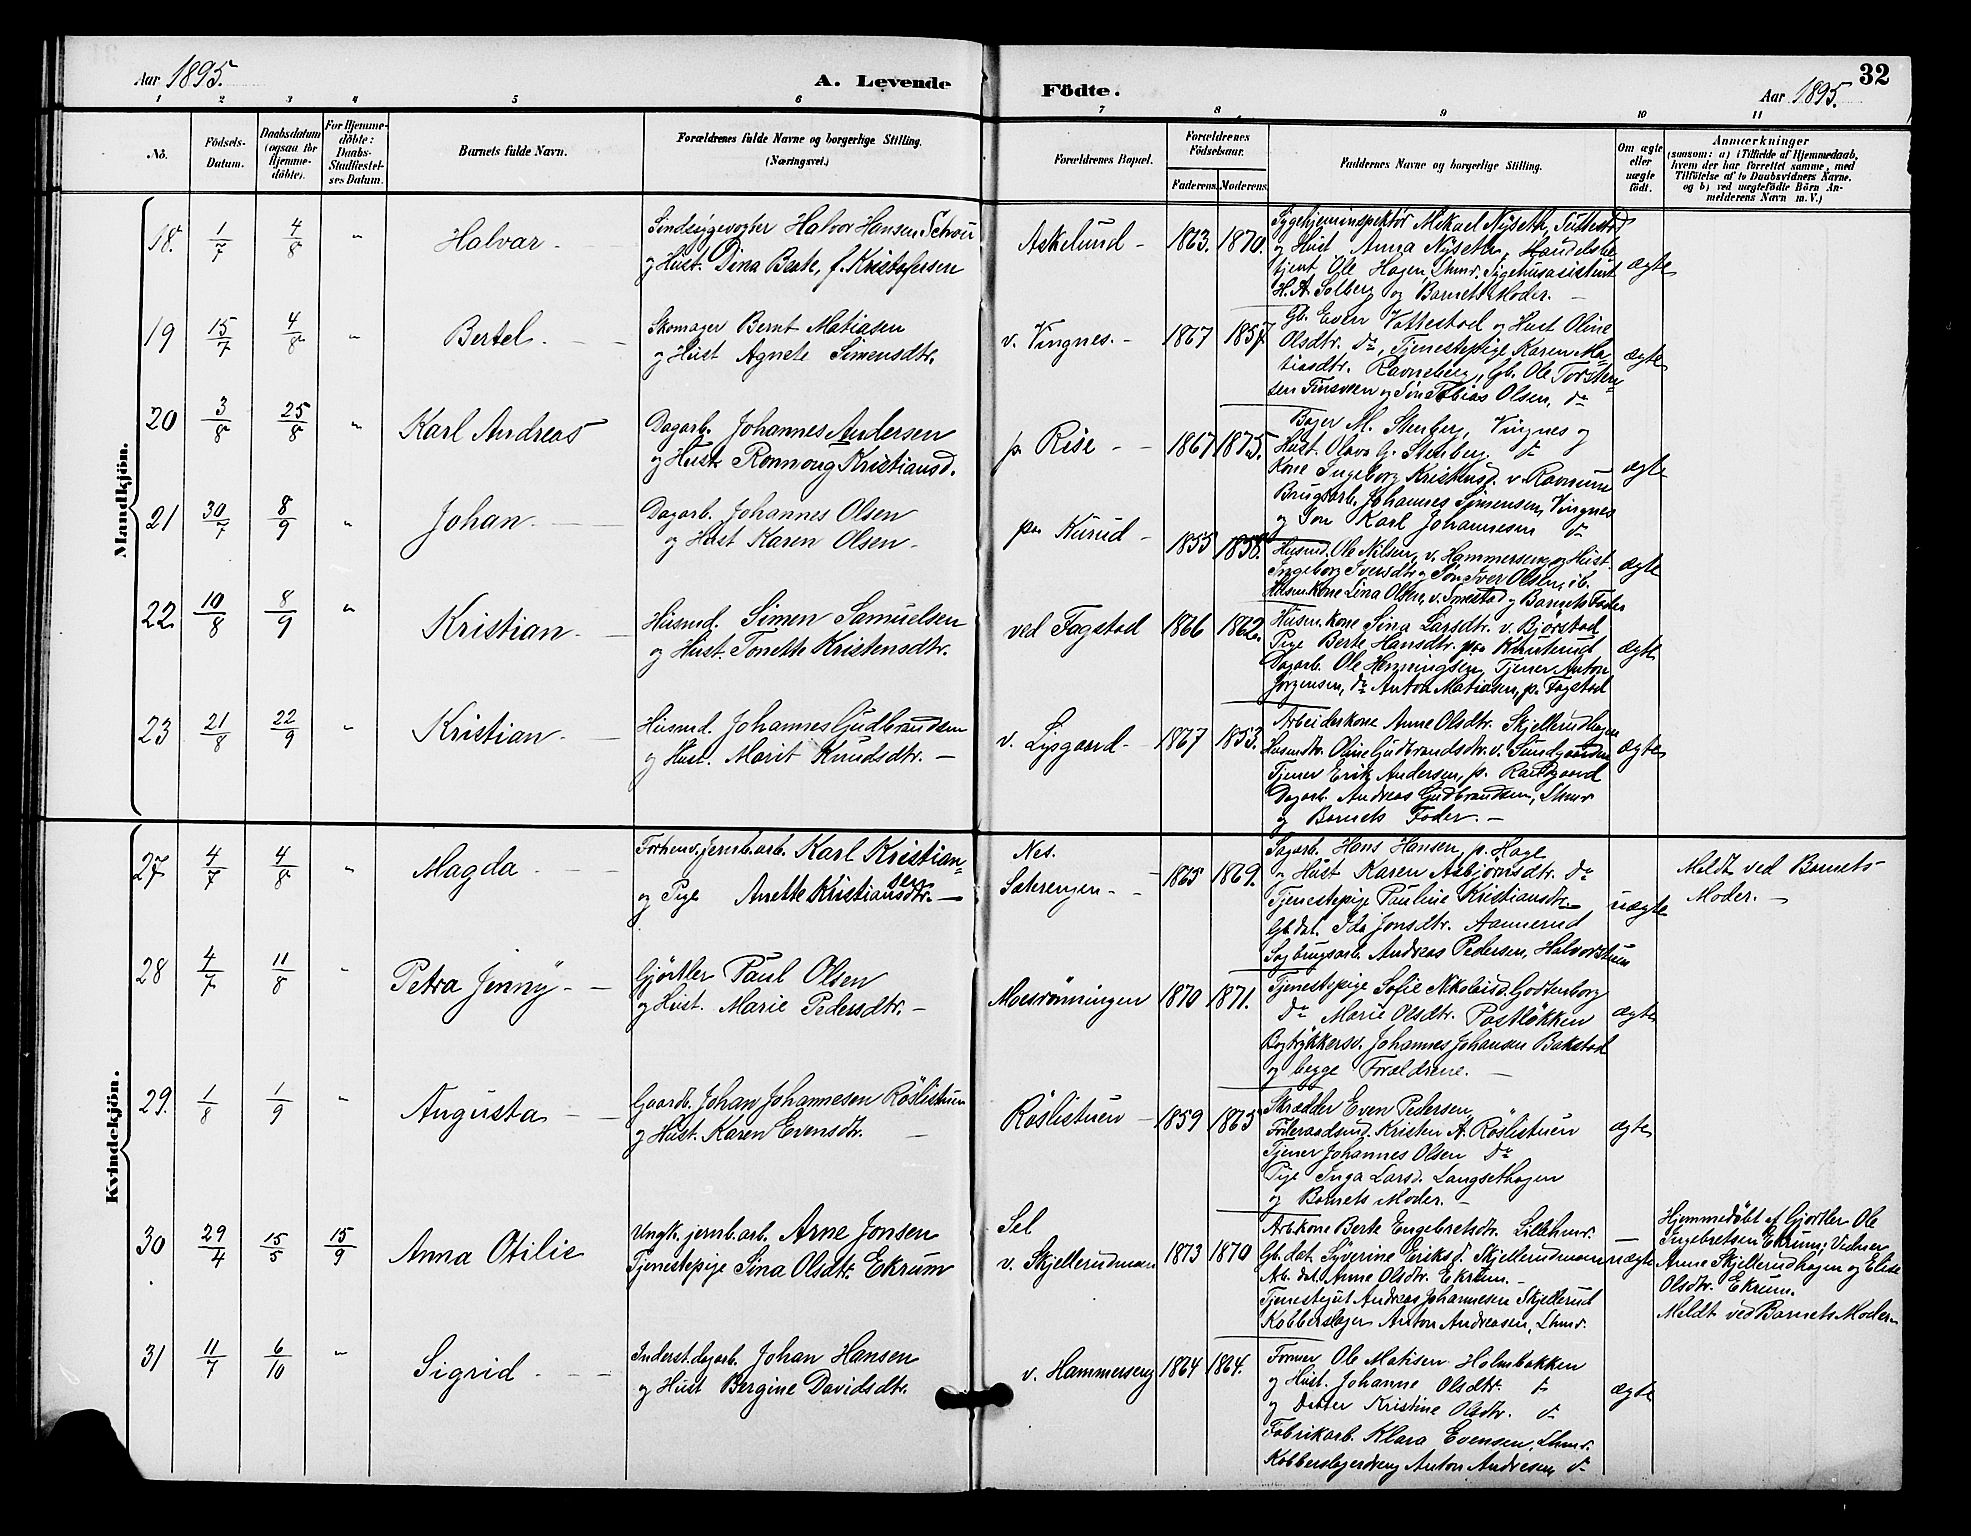 32
Aar 1895.
A. Levende Födte.
Aar 1895.
1 2 3 4 5 6 7 8 9 10 11
No.
Födsels-Datum.
Daabsdatum (ogsaa for Hjemme-döbte).
For Hjemme-döbte: Daabs-Stadfæstel-ses Datum.
Barnets fulde Navn.
Forældrenes fulde Navne og borgerlige Stilling. (Næringsvei.)
Forældrenes Bopæl.
Forældrenes Födselsaar. Faderens. Moderens.
Faddernes Navne og borgerlige Stilling.
Om ægte eller uægte födt.
Anmærkninger
(saasom: a) i Tilfælde af Hjemmedaab,
hvem der har forrettet samme, med
Tilföielse af to Daabsvidners Navne,
og b) ved uægtefödte Börn An-
melderens Navn m. V.)
Mandkjön.
18. 1/7 4/8 " Halvar
Sindssygevogter Halvor Hansen
og Hust. Dina Beate, f. Kristofersen
Askelund 1863. 1870.
Sygehjeminspektör Mikael Nyseth,
og Hust Anna Nyseth, Handelsbe-
tjent Ole Hagen, Lhmr. Sygehusassistent
H. A. Solberg og Barnets Moder.
ægte
19 15/7 4/8 " Bertel.
Skomager Bernt Matiasen
og Hust Agnete Simensdtr.
v. Vingnes. 1867 1857.
Gb. Even Vottestad og Hust Oline
Olsdtr. do, Tjenestepige Karen Ma-
tiasdtr. Ravneberg, Gb. Ole Torsten-
sen og Søn Tobias Olsen, do
ægte
20 3/8 25/8 " Karl Andreas
Dagarb. Johannes Andersen
og Hustr Rønnoug Kristiansd.
pr Rise 1867 1875.
M. Stenberg, Vingnes og
Hust. Olava G. Stenberg. do
Kone Ingeborg Kristensd. v.
Brugsarb. Johannes Simensen, Vingnes
og Søn Karl Johannesen do
ægte
21 30/7 8/9 " Johan.
Dagarb. Johannes Olsen
og Hust Karen Olsen
paa Kurud 1855 1858.
Husmd. Ole Nilsen, v. Hammerseng og Hust.
Ingeborg Iversdtr og Søn Iver Olsen, ib.
Kone Lina Olsen, v. og Barnets Fader
ægte
22. 10/8 8/9 " Kristian
Husmd. Simen Samuelsen
og Hust. Tonette Kristensdtr.
ved Fagstad 1866 1862.
Husm. kone Sina Larsdtr. v. Bjørstad
Pige Berte Hansdtr. paa Knuterud
Dagarb. Ole Henningsen, Tjener Anton
Jørgensen, do Anton Matiasen, p. Fagstad
ægte
23 21/8 22/9 " Kristian
Husmd. Johannes Gudbrandsen
og Hust. Marit Knudsdtr.
v. Lysgaard 1867 1853.
Arbeiderkone Anne Olsdtr. Skjellerudhagen
Husmdtr. Oline Gudbrandsdtr. v. Sundgaarden
Tjener Erik Andersen, p.
Dagarb. Andreas Gudbrandsen, Lhmr
og Barnets Fader.
ægte
Kvindekjön.
27 4/7 4/8 " Magda
Forhenv. jernb.arb. Karl Kristian-
sen
og Pige Anette Kristiansdtr.
Nes.
Sæterengen 1865 1869.
Sagarb. Hans Hansen, p. Hage
og Hust Karen Asbjørnsdtr. do
Tjenestepige Pauline Kristiansdtr.
Gb.dat. Ida Jonsdtr. Aannerud
Sagbrugsarb. Andreas Pedersen, Halvorstuen
uægte
Meldt ved Barnets
Moder.
28 4/7 11/8 " Petra Jenny
Gjørtler Paul Olsen
og Hust. Marie Pedersdtr.
Moesrønningen 1870 1871.
Tjenestepige Sofie Nikolaisd. Godtenborg
do Marie Olsdtr. Postløkken
Bogtrykkersv. Johannes Johansen Bakstad
og begge Forældrene.
ægte
29. 1/8 1/9 " Augusta
Gaardb. Johan Johannesen Røslistuen
og Hust. Karen Evensdtr.
Røslistuen 1859 1865
Skrædder Even Pedersen
Føderaadsmd. Kristen A. Røslistuen
Tjener Johannes Olsen do
Pige Inga Larsd. Langsethagen
og Barnets Moder.
ægte
30 29/4 15/5 15/9 Anna Otilie
Ungk. jernb.arb. Arne Jonsen
Tjenestepige Sina Olsdtr. Ekrum
Sel
v. Skjellerudmoen 1873 1870
Arb.kone Berte Engebretsdtr. Lillehmr.
Gb.dat. Syverine Eriksd. Skjellerudmoen
Arb. dat. Anne Olsdtr. Ekrum.
Tjenestegut Andreas Johannesen Skjellerud
Kobberslager Anton Andreasen, Lhmr.
uægte
Hjemmedøbt af Gjørtler Ole
Ingebretsen Ekrum; Vidner
Anne Skjellerudhagen og Elise
Olsdtr. Ekrum.
Meldt ved Barnets Moder
31 11/7 6/10 " Sigrid
Inderst. dagarb. Johan Hansen
og Hust Bergine Davidsdtr.
v. Hammerseng 1864 1864.
Former Ole Matisen Holmbakken
og Hust. Johanne Olsdtr. do
og Datter Kristine Olsdtr. do
Fabrikarb. Klara Evensen, Lhmr.
Kobberslagerdreng Anton Andresen, do
ægte